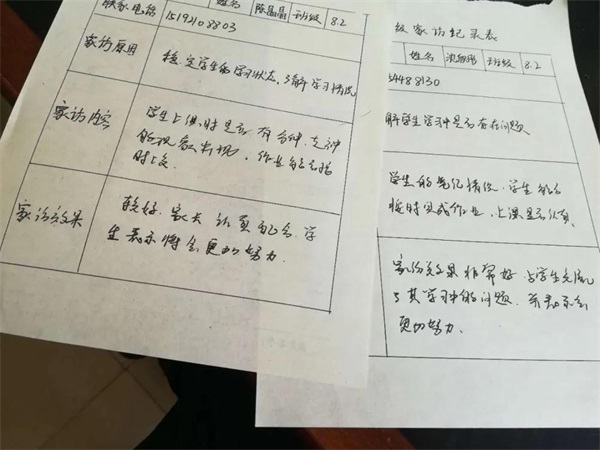 联系电话 姓名 陈晶晶 班级 8.2
15192108803
家访原因
稳定学生的学习状态，了解学习情况
家访内容
学生上课时是否有分神、走神
的现象出现，作业能否按
时上交
家访效果
较好，家长认真配合，学
生表示将会更加努力.
级家访纪录表
姓名 班级 8.2
54488130
解学生学习中是否存在问题
学生的笔记情况，学生能否
按时完成作业，上课是否认真
家访效果非常好，与学生交流
了其学习中的问题，并表示会
更加努力.